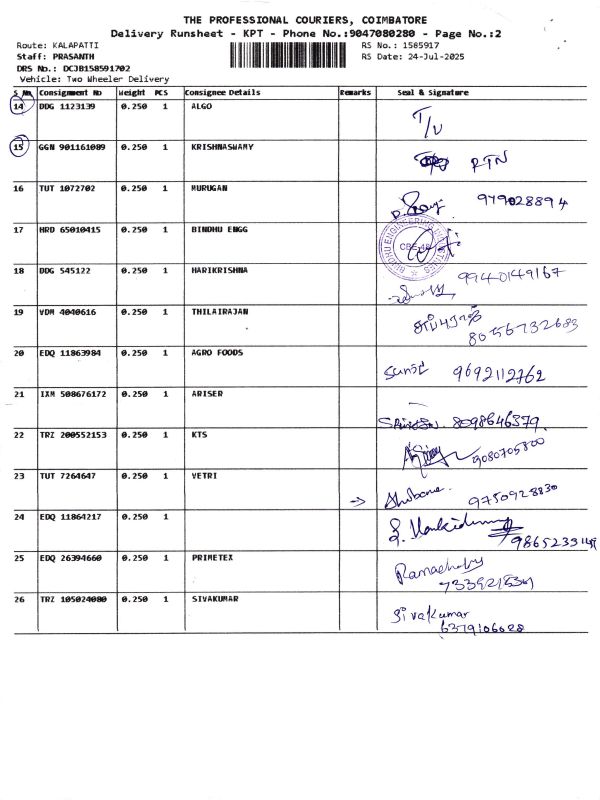 THE PROFESSIONAL COURIERS, COIMBATORE
Delivery Runsheet - KPT - Phone No.:9047080280 - Page No.:2
Route: KALAPATTI RS No.: 1585917
Staff: PRASANTH RS Date: 24-Jul-2025
DRS No.: DCJB158591702
Vehicle: Two Wheeler Delivery
S No Consignment No Weight PCS Consignee Details Remarks Seal & Signature
14 DDG 1123139 0.250 1 ALGO T/U
15 GGN 901161089 0.250 1 KRISHNASWAMY RTN
16 TUT 1072702 0.250 1 MURUGAN
17 HRD 65010415 0.250 1 BINDHU ENGG
18 DDG 545122 0.250 1 HARIKRISHNA 99440149167
19 VDM 4040616 0.250 1 THILAIRAJAN
8056732683
20 EDQ 11863984 0.250 1 AGRO FOODS 9692112762
21 IXM 508676172 0.250 1 ARISER 8098646379
22 TRZ 200552153 0.250 1 KTS 9080705800
23 TUT 7264647 0.250 1 VETRI → 9750928830
24 EDQ 11864217 0.250 1
25 EDQ 26394660 0.250 1 PRIMETEX
26 TRZ 105024080 0.250 1 SIVAKUMAR Sivakumar
6379106628